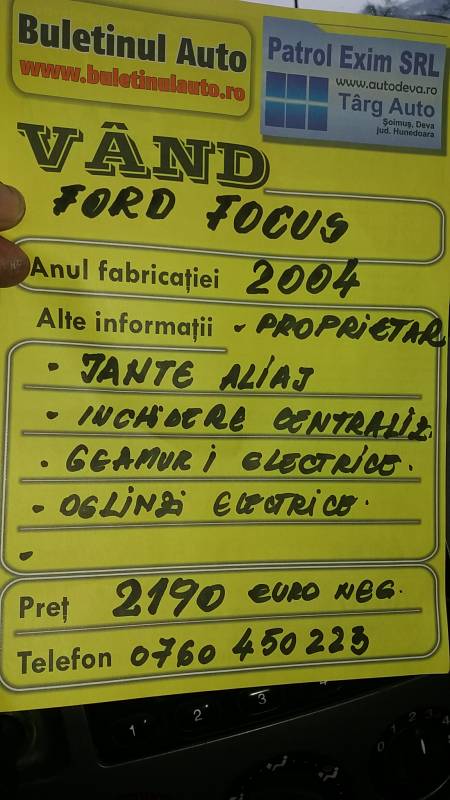 Buletinul Auto
www.buletinulauto.ro
Patrol Exim SRL
www.autodeva.ro
Târg Auto
Șoimuș, Deva
jud. Hunedoara
VÂND
FORD FOCUS
Anul fabricației 2004
Alte informații - PROPRIETAR
- JANTE ALIAJ
- INCHIDERE CENTRALIZ.
- GEAMURI ELECTRICE.
- OGLINZI ELECTRICE.
-
Preț 2190 EURO NEG.
Telefon 0760 450 223
1 2 3 4
0 1 2 3 4